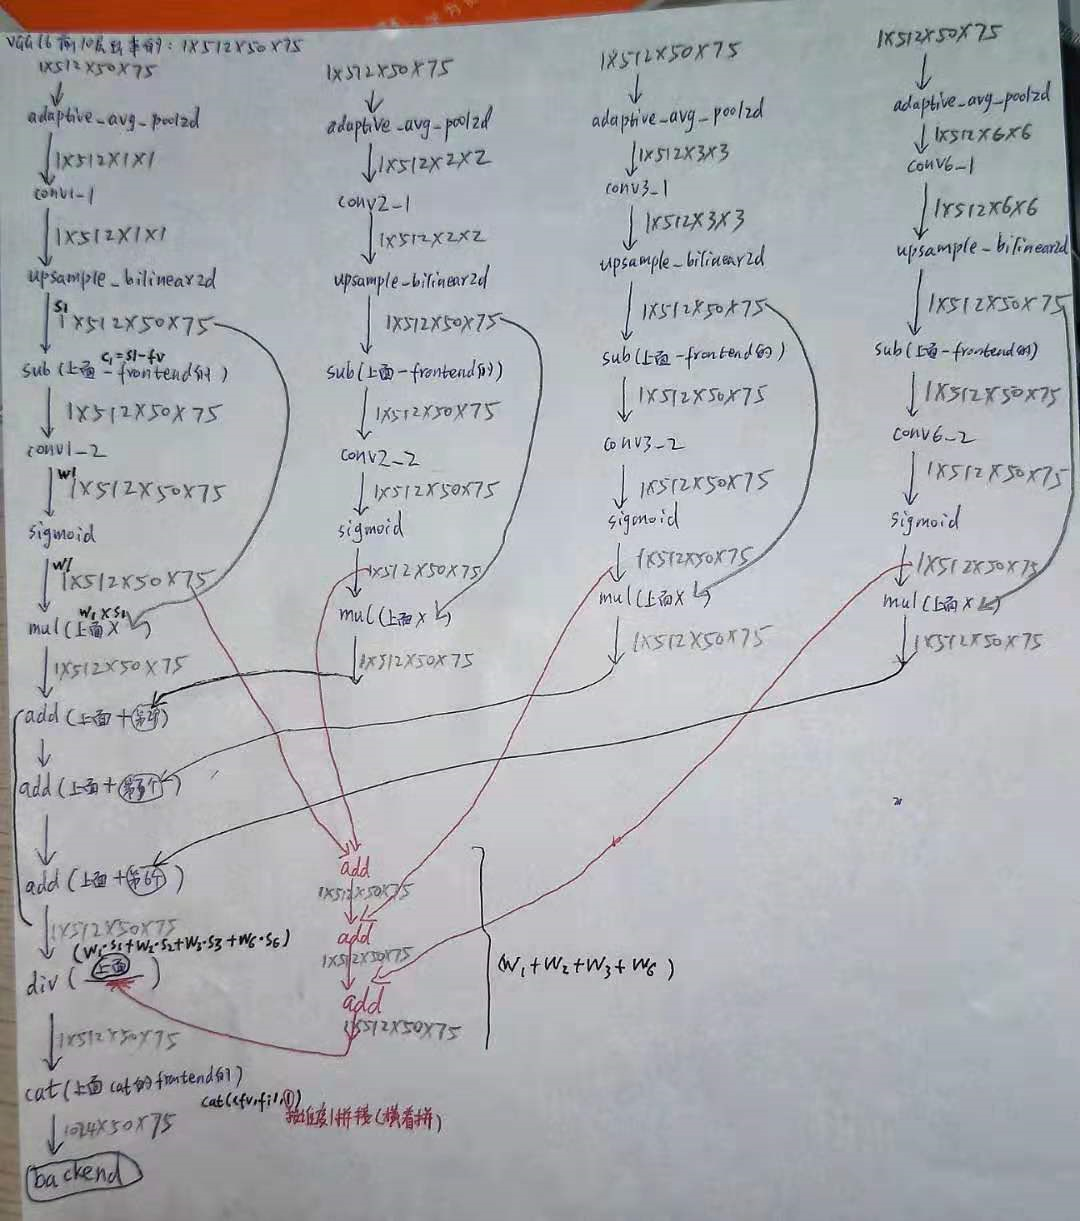 VGG16前10层出来的: 1X512X50X75
1X512X50X75
adaptive_avg_pool2d
1X512X1X1
conv1-1
1X512X1X1
upsample_bilinear2d
S1
1X512X50X75
C1=S1-fv
sub(上面-frontend的)
1X512X50X75
conv1-2
W1
1X512X50X75
sigmoid
W1
1X512X50X75
W1XS1
mul(上面X)
1X512X50X75
add(上面+第2个)
add(上面+第3个)
add(上面+第6个)
1X512X50X75
(W1·S1+W2·S2+W3·S3+W6·S6)
div(上面)
1X512X50X75
cat(上面cat的frontend的)
cat((fv,fi),1)
按维度1拼接(横着拼)
1024X50X75
backend
1X512X50X75
adaptive_avg_pool2d
1X512X2X2
conv2-1
1X512X2X2
upsample_bilinear2d
1X512X50X75
sub(上面-frontend的)
1X512X50X75
conv2-2
1X512X50X75
sigmoid
1X512X50X75
mul(上面X)
1X512X50X75
add
1X512X50X75
add
1X512X50X75
add
1X512X50X75
(W1+W2+W3+W6)
1X512X50X75
adaptive_avg_pool2d
1X512X3X3
conv3_1
1X512X3X3
upsample_bilinear2d
1X512X50X75
sub(上面-frontend的)
1X512X50X75
conv3_2
1X512X50X75
sigmoid
1X512X50X75
mul(上面X)
1X512X50X75
1X512X50X75
adaptive_avg_pool2d
1X512X6X6
conv6-1
1X512X6X6
upsample_bilinear2d
1X512X50X75
sub(上面-frontend的)
1X512X50X75
conv6-2
1X512X50X75
sigmoid
1X512X50X75
mul(上面X)
1X512X50X75